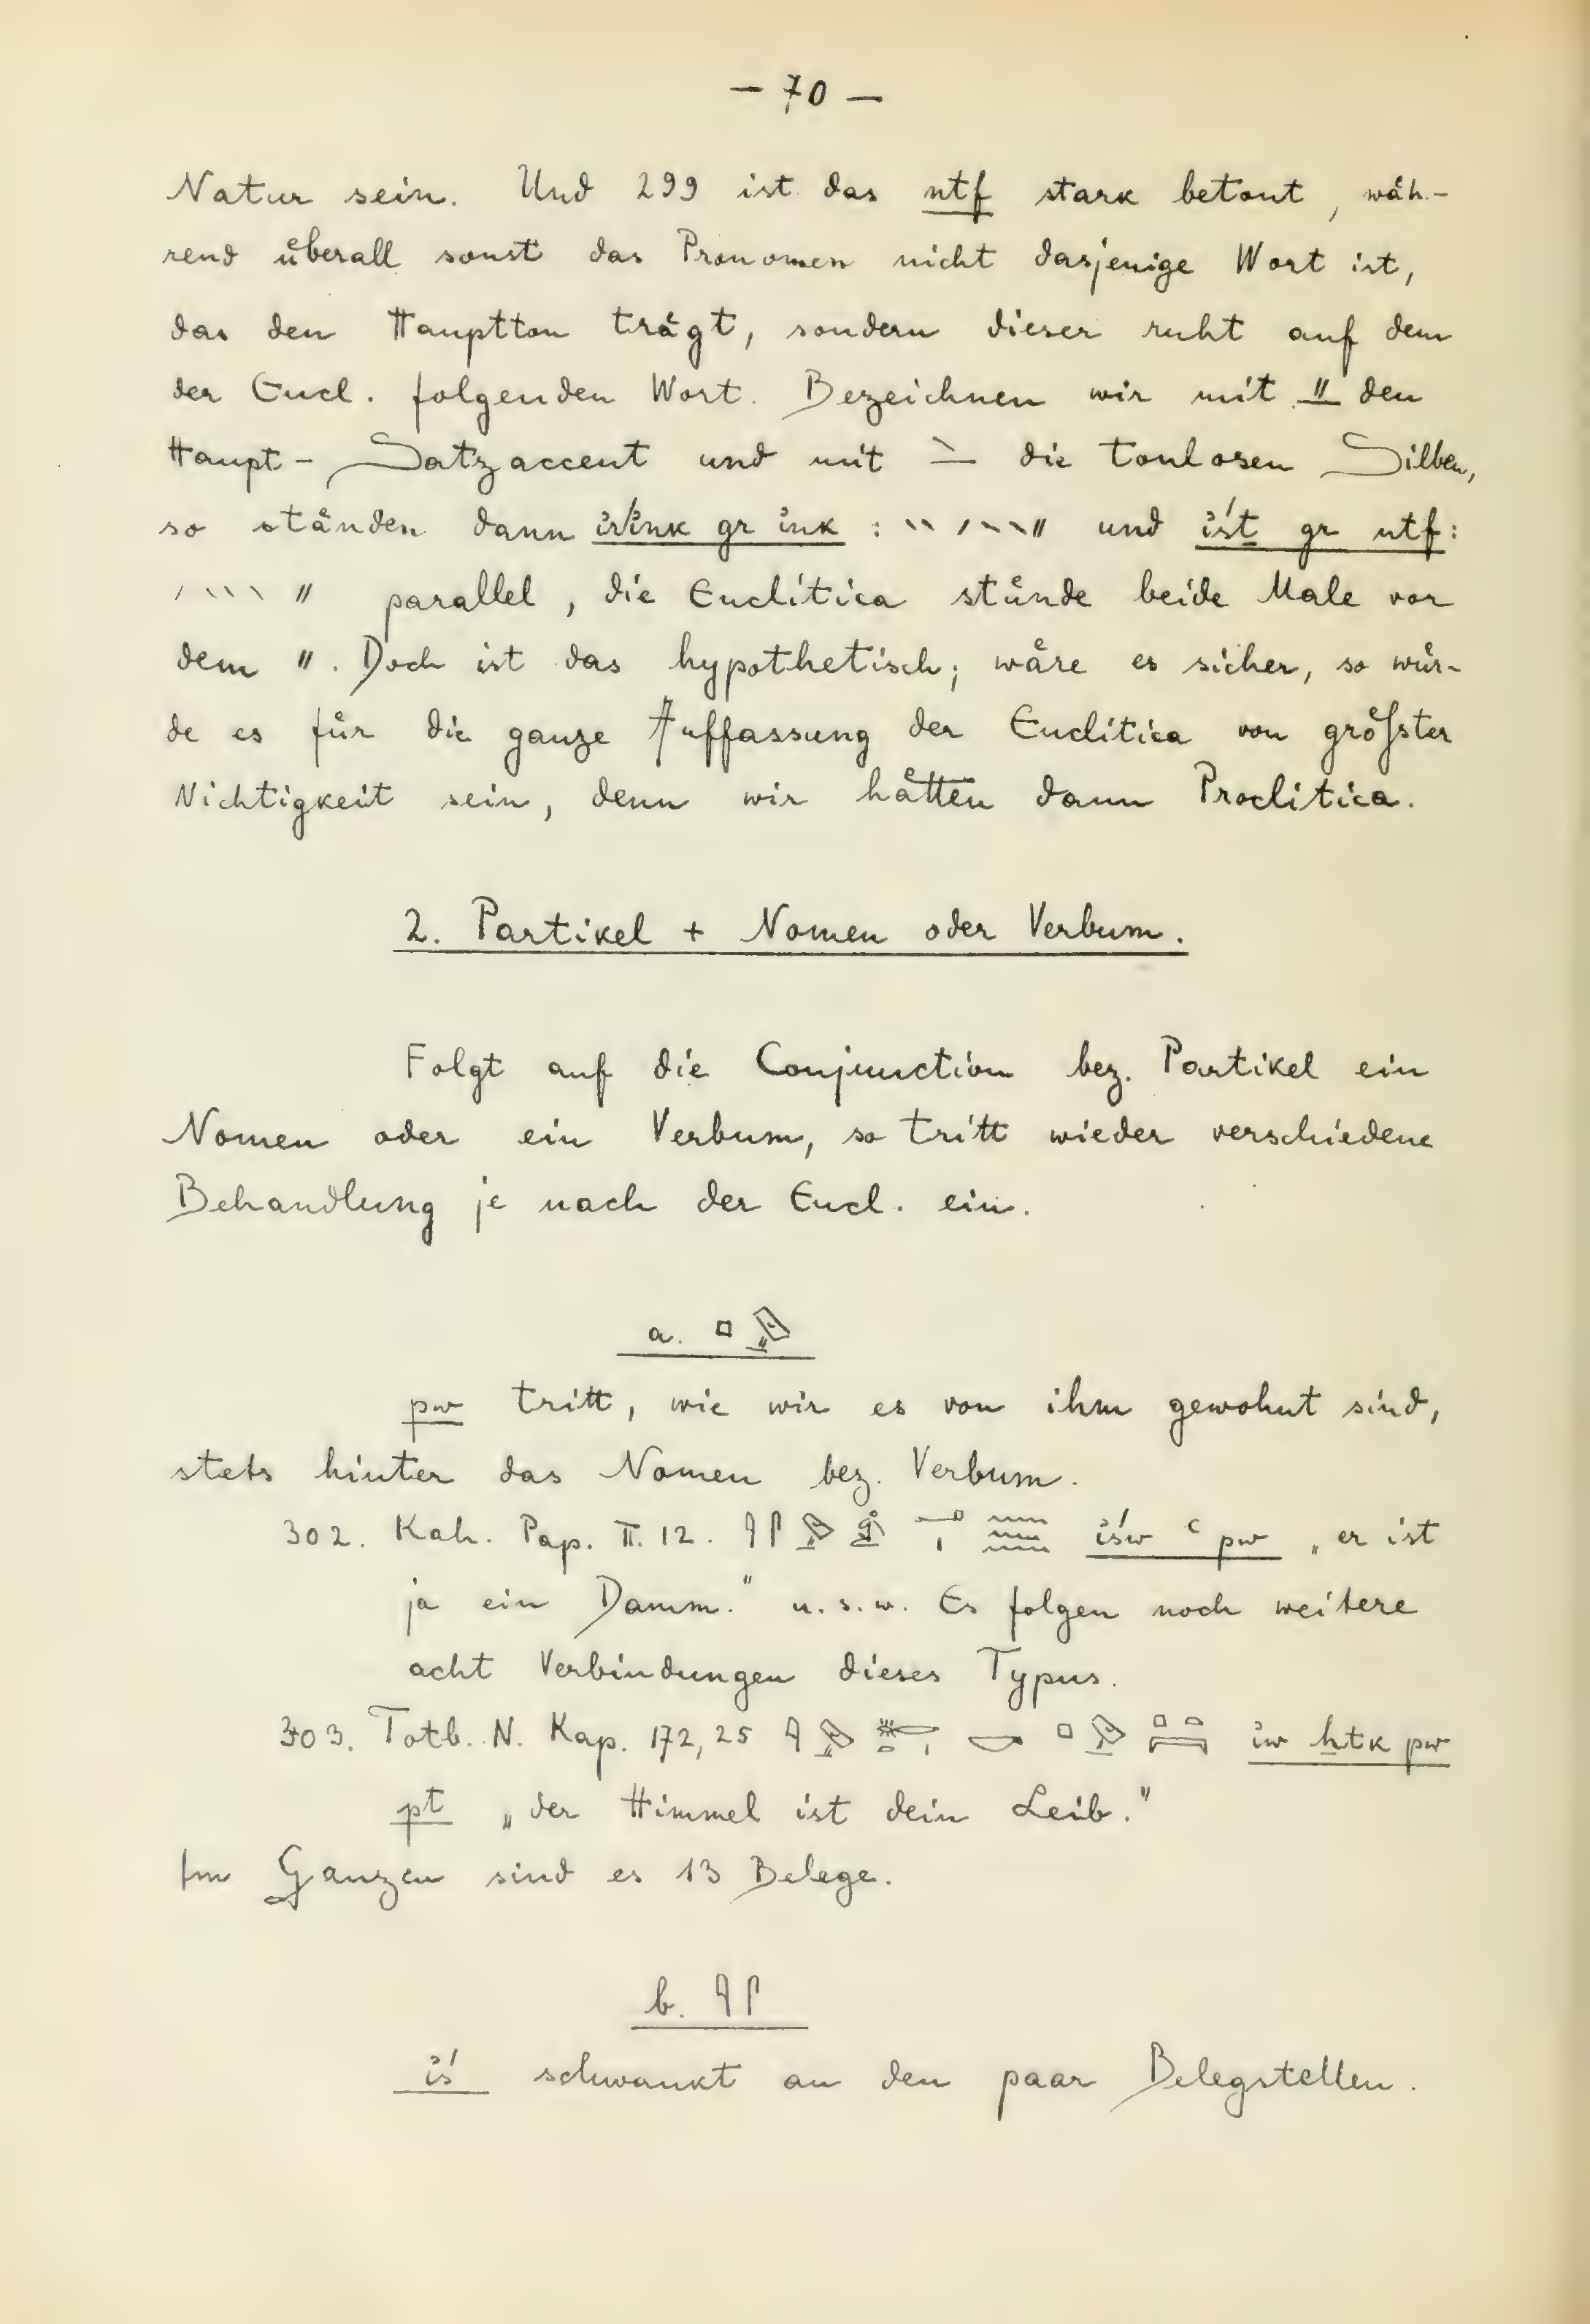 — 70 —
Natur sein. Und 299 ist das ntf stark betont, wäh-
rend überall sonst das Pronomen nicht dasjenige Wort ist,
das den Hauptton trägt, sondern dieser ruht auf dem
der Encl. folgenden Wort. Bezeichnen wir mit " den
Haupt-Satzaccent und mit ` die tonlosen Silben,
so ständen dann gr ink : `` ´``" und iśt gr ntf:
´ ``` " parallel, die Enclitica stünde beide Male vor
dem ". Doch ist das hypothetisch; wäre es sicher, so wür-
de es für die ganze Auffassung der Enclitica von größter
Wichtigkeit sein, denn wir hätten dann Proclitica.
2. Partikel + Nomen oder Verbum.
Folgt auf die Conjunction bez. Partikel ein
Nomen oder ein Verbum, so tritt wieder verschiedene
Behandlung je nach der Encl. ein.
a.
pw tritt, wie wir es von ihm gewohnt sind,
stets hinter das Nomen bez. Verbum.
302. Kah. Pap. II. 12. iśw ꜥ pw „er ist
ja ein Damm." u.s.w. Es folgen noch weitere
acht Verbindungen dieses Typus.
303. Totb. N. Kap. 172,25 iw ẖtk pw
pt „der Himmel ist dein Leib."
Im Ganzen sind es 13 Belege.
b. 𓇋𓋴
iś schwankt an den paar Belegstellen.